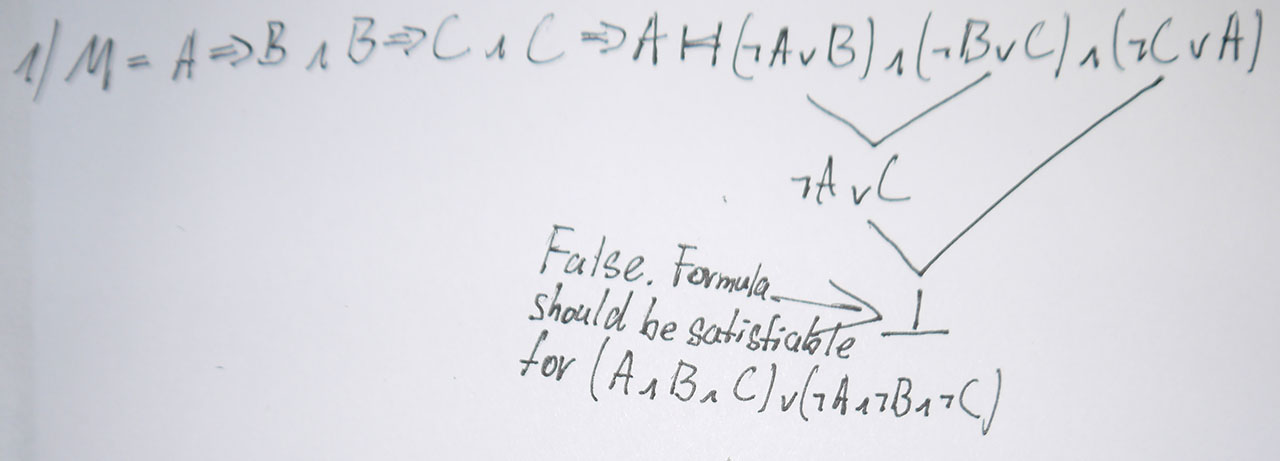 1/ M = A ⇒ B ∧ B ⇒ C ∧ C ⇒ A H (¬A ∨ B) ∧ (¬B ∨ C) ∧ (¬C ∨ A)
¬A ∨ C
False. Formula
should be satisfiable
for (A ∧ B ∧ C) ∨ (¬A ∧ ¬B ∧ ¬C)
⊥